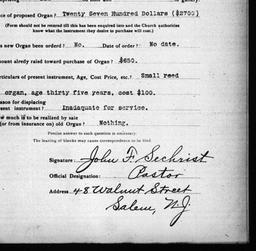 ce of proposed Organ? Twenty Seven Hundred Dollars ($2700)
(Form should not be returned till this has been inquired into and the Church authorities
know what the instrument they desire to purchase will cost.)
s new Organ been ordered? No. Date of order? No date.
ount already raised toward purchase of Organ? $650.
rticulars of present instrument, Age, Cost price, etc.? Small reed
organ, age thirty five years, cost $100.
eason for displacing
resent instrument? Inadequate for service.
ow much is to be realized by sale
(or from insurance) on old Organ? Nothing.
Precise answer to each question is necessary.
The leaving of blanks may causes correspondence to be filed.
Signature John F. Sechrist
Official Designation: Pastor
Address 48 Walnut Street
Salem, NJ